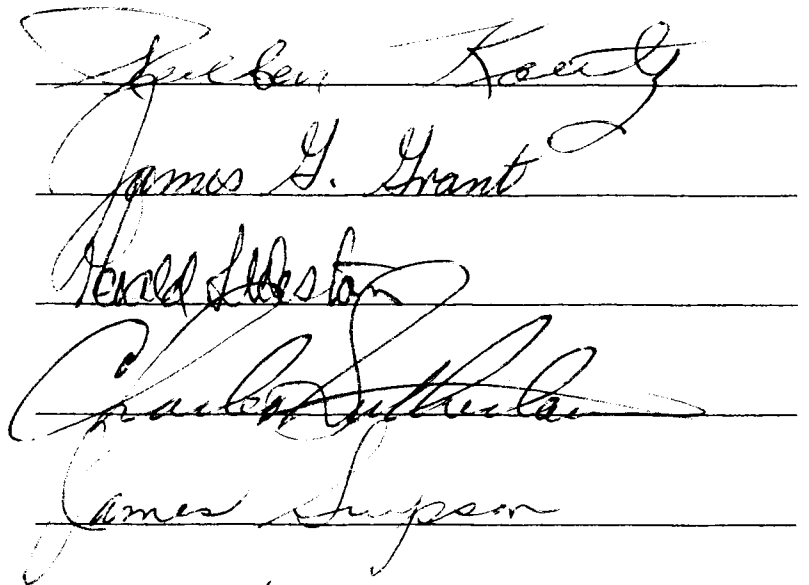 James G. Grant
Gerald L Weston
Charles Sutherland
James Simpson